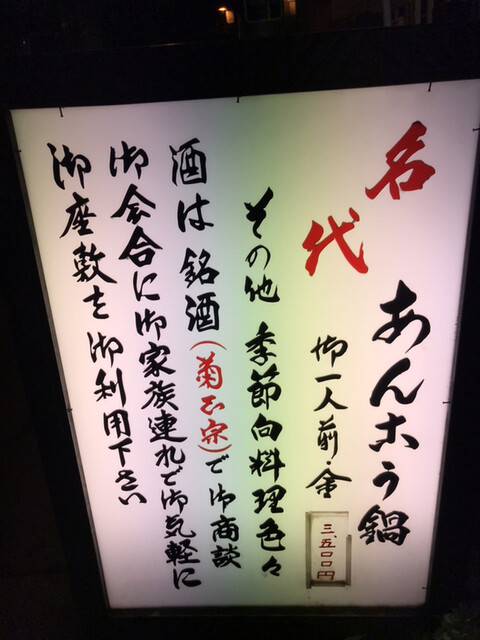 名代
あんこう鍋
御一人前・金
三、五〇〇円
その他 季節向料理色々
酒は 銘酒(菊正宗)で 御商談
御会合に御家族連れで御気軽に
御座敷を 御利用下さい